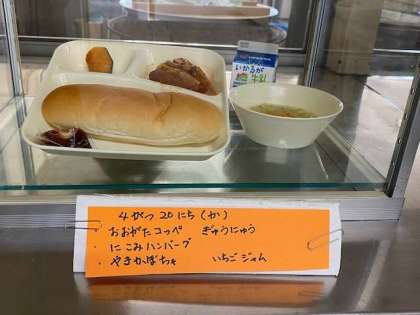 いかるが
牛乳
4がつ 20にち(か)
・おおがたコッペ ぎゅうにゅう
・にこみハンバーグ
・やきかぼちゃ いちごジャム